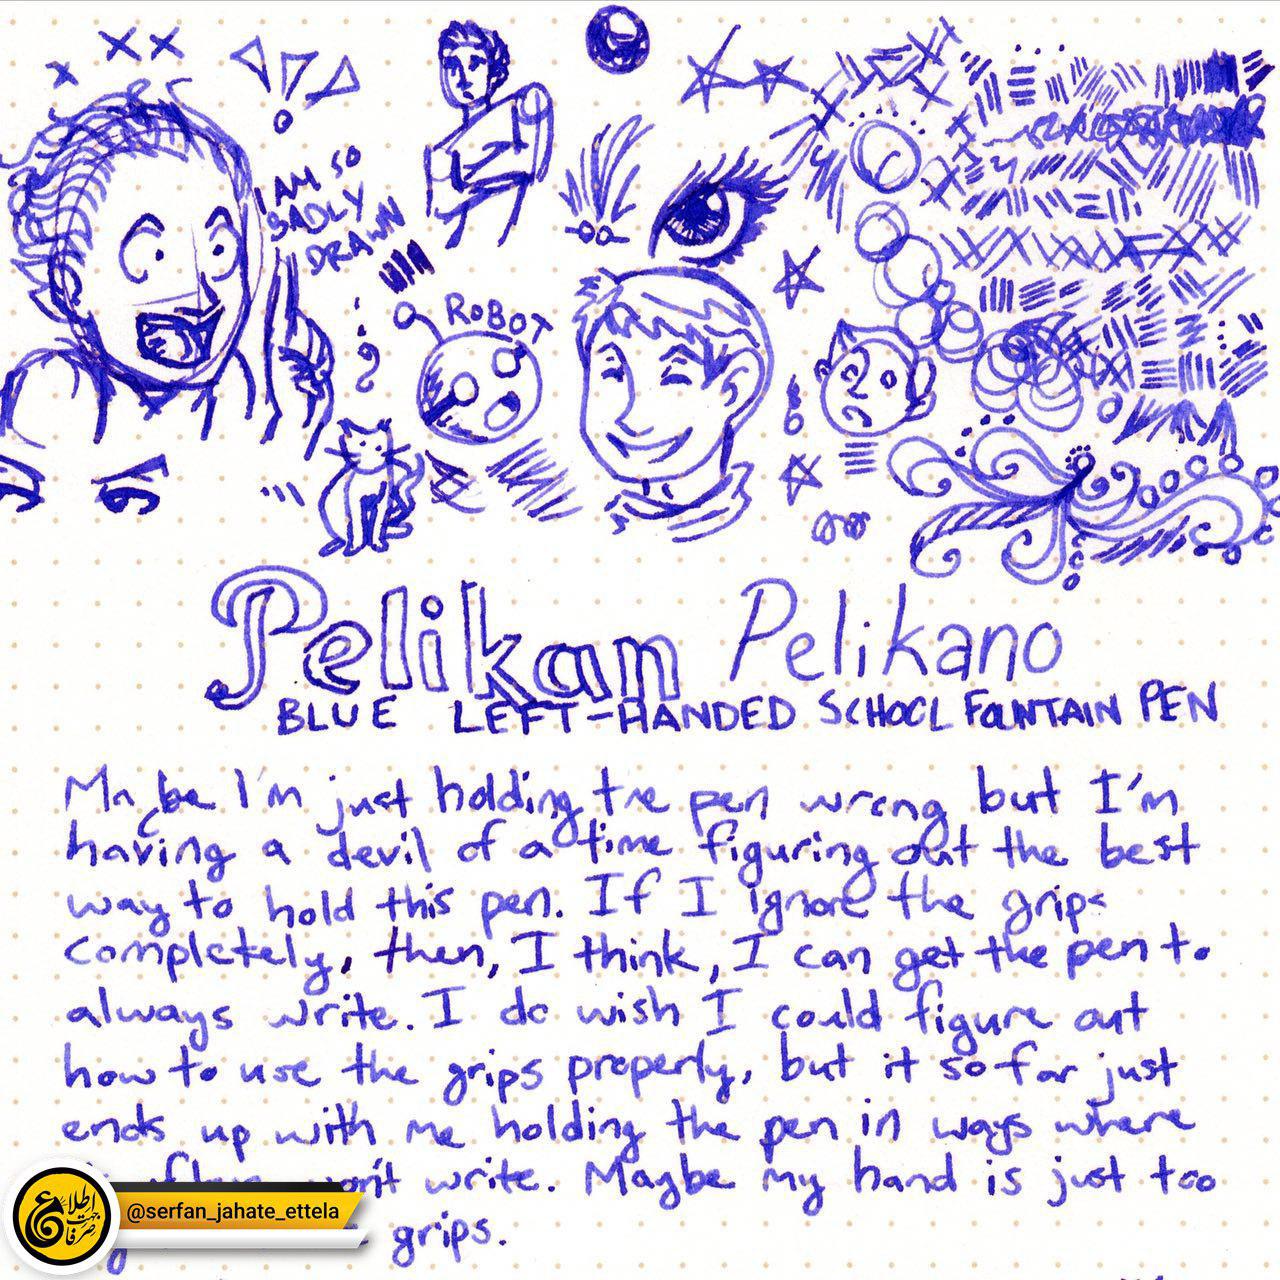 I AM SO
BADLY
DRAWN
ROBOT
Pelikan Pelikano
BLUE LEFT-HANDED SCHOOL FOUNTAIN PEN
Maybe I'm just holding the pen wrong but I'm
having a devil of a time figuring out the best
way to hold this pen. If I ignore the grips
completely, then, I think, I can get the pen to
always write. I do wish I could figure out
how to use the grips properly, but it so far just
ends up with me holding the pen in ways where
often won't write. Maybe my hand is just too
grips.
اطلاع
جهت
صرفا
@serfan_jahate_ettela